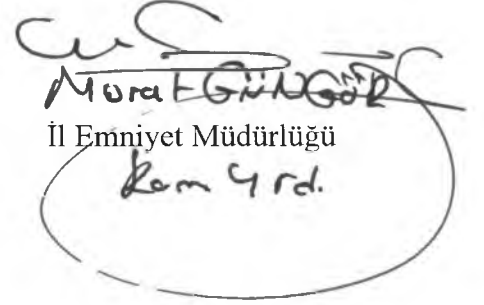 Murat GÜNGÖR
İl Emniyet Müdürlüğü
Kom Yrd.